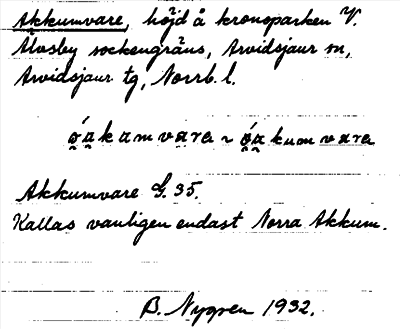 Akkumvare, höjd å kronoparken V.
Älvsby sockengräns, Arvidsjaur sn,
Arvidsjaur tg, Norrb. l.
óakamvarɛ ~ óakumvarɛ
Akkumvare G. 35.
Kallas vanligen endast Norra Akkum.
B. Nygren 1932.